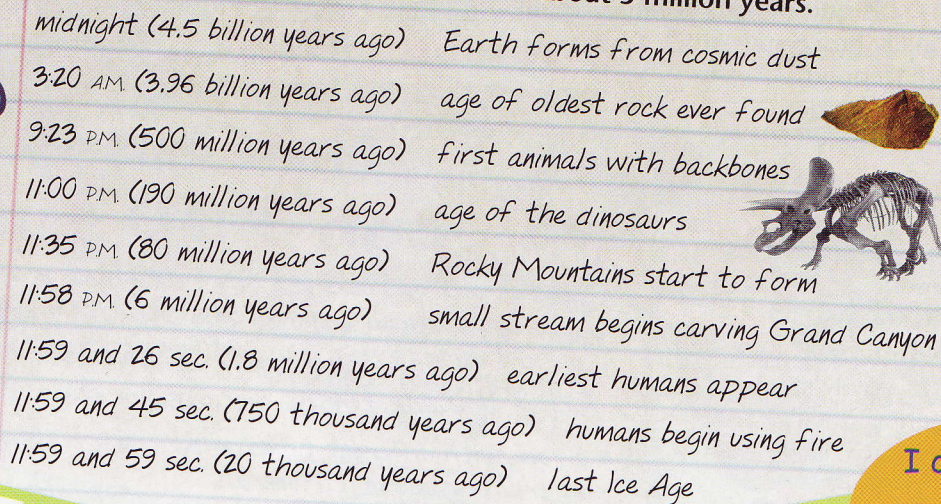 million years.
midnight (4.5 billion years ago) Earth forms from cosmic dust
3:20 A.M. (3.96 billion years ago) age of oldest rock ever found
9:23 P.M. (500 million years ago) first animals with backbones
11:00 P.M. (190 million years ago) age of the dinosaurs
11:35 P.M. (80 million years ago) Rocky Mountains start to form
11:58 P.M. (6 million years ago) small stream begins carving Grand Canyon
11:59 and 26 sec. (1.8 million years ago) earliest humans appear
11:59 and 45 sec. (750 thousand years ago) humans begin using fire
11:59 and 59 sec. (20 thousand years ago) last Ice Age
I